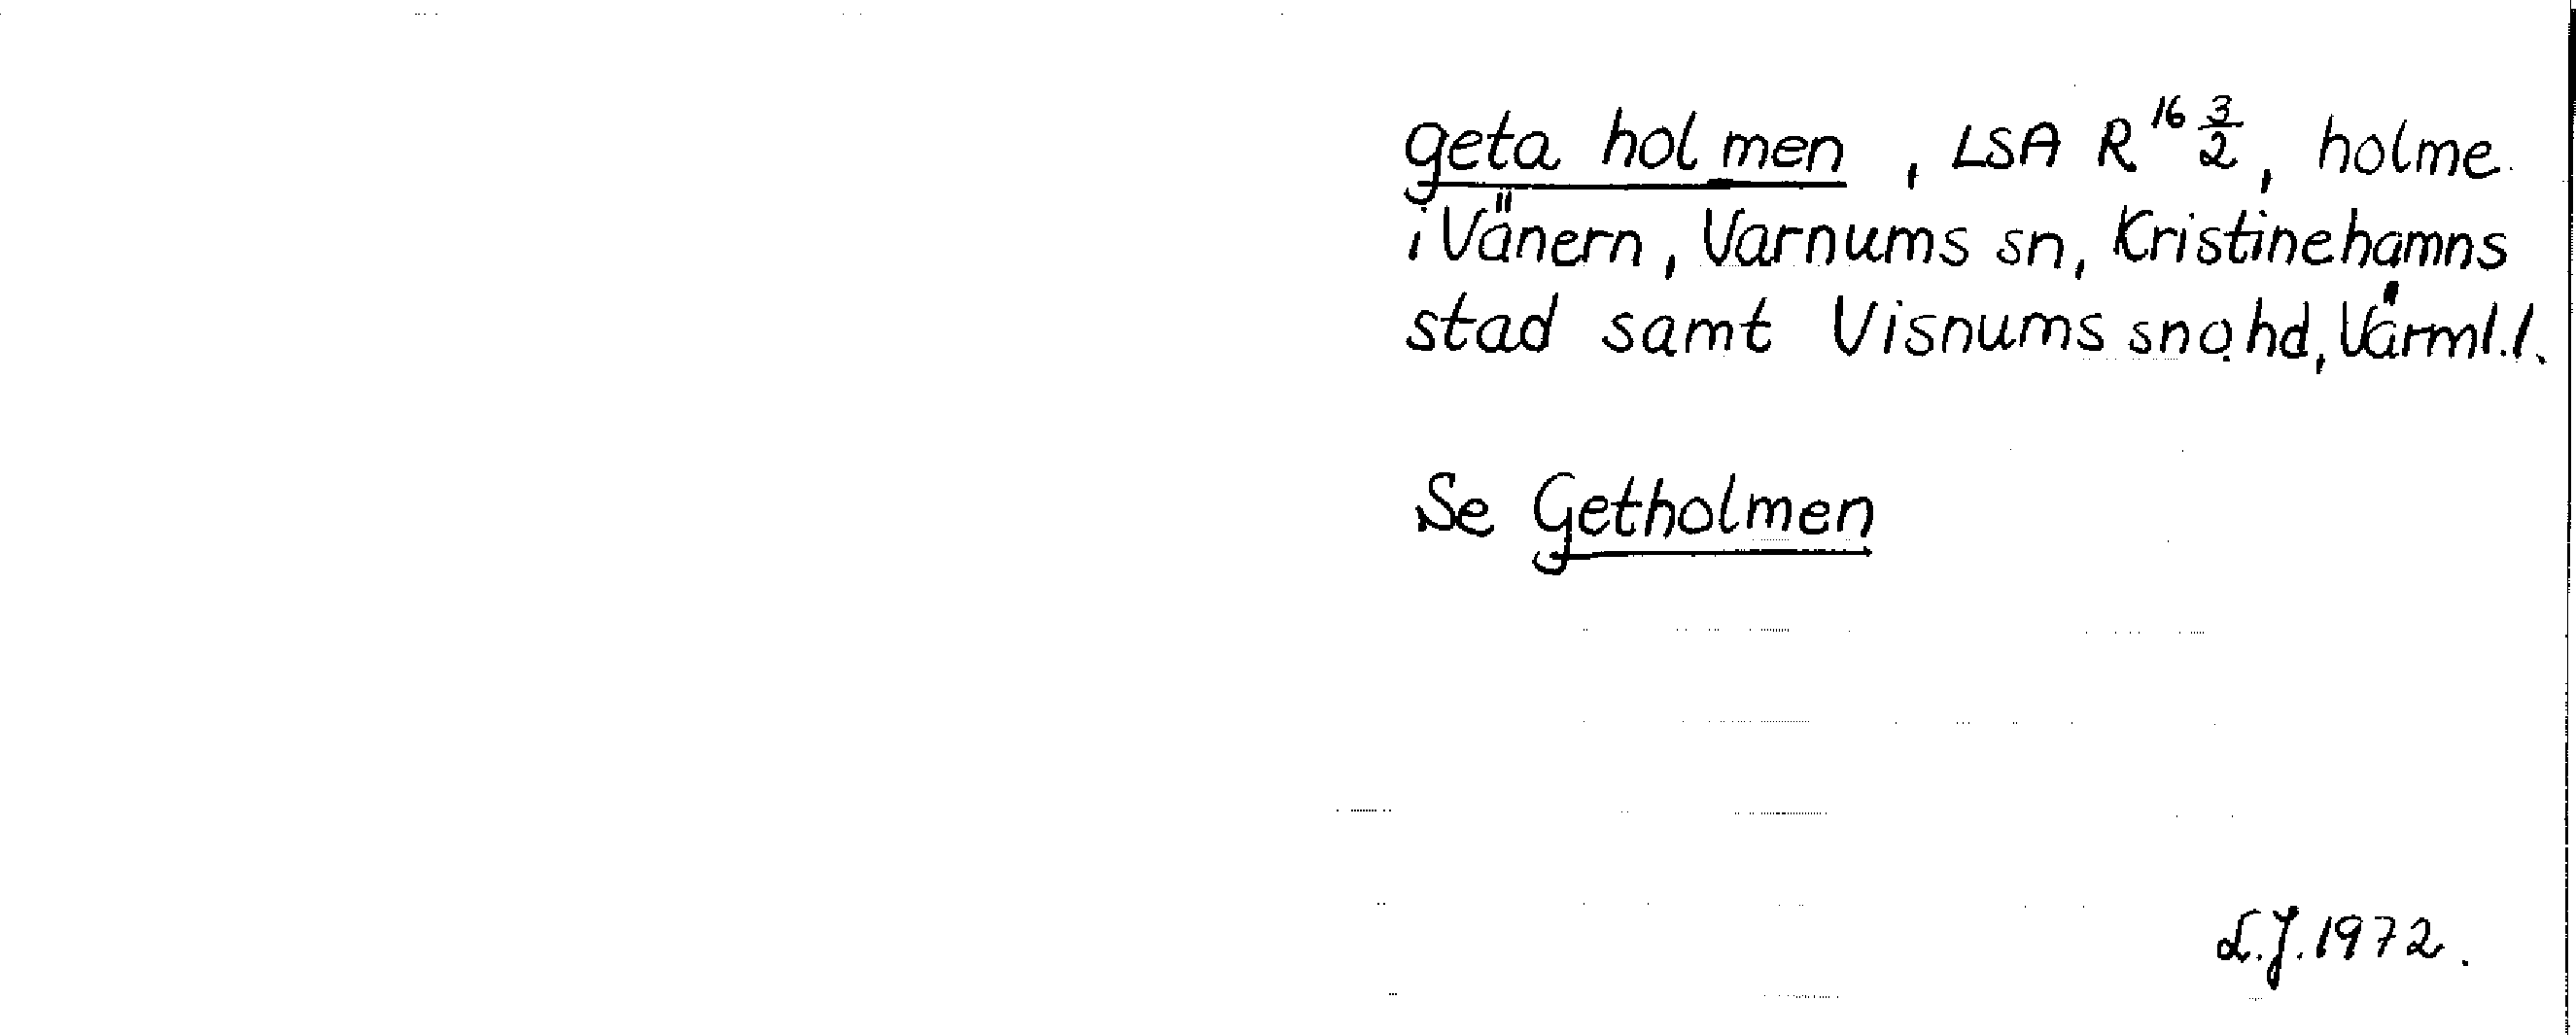 geta holmen, LSA R 16 3/2, holme
i Vänern, Varnums sn, Kristinehamns
stad samt Visnums sn o. hd, Värml. l.
Se Getholmen
L.J. 1972.